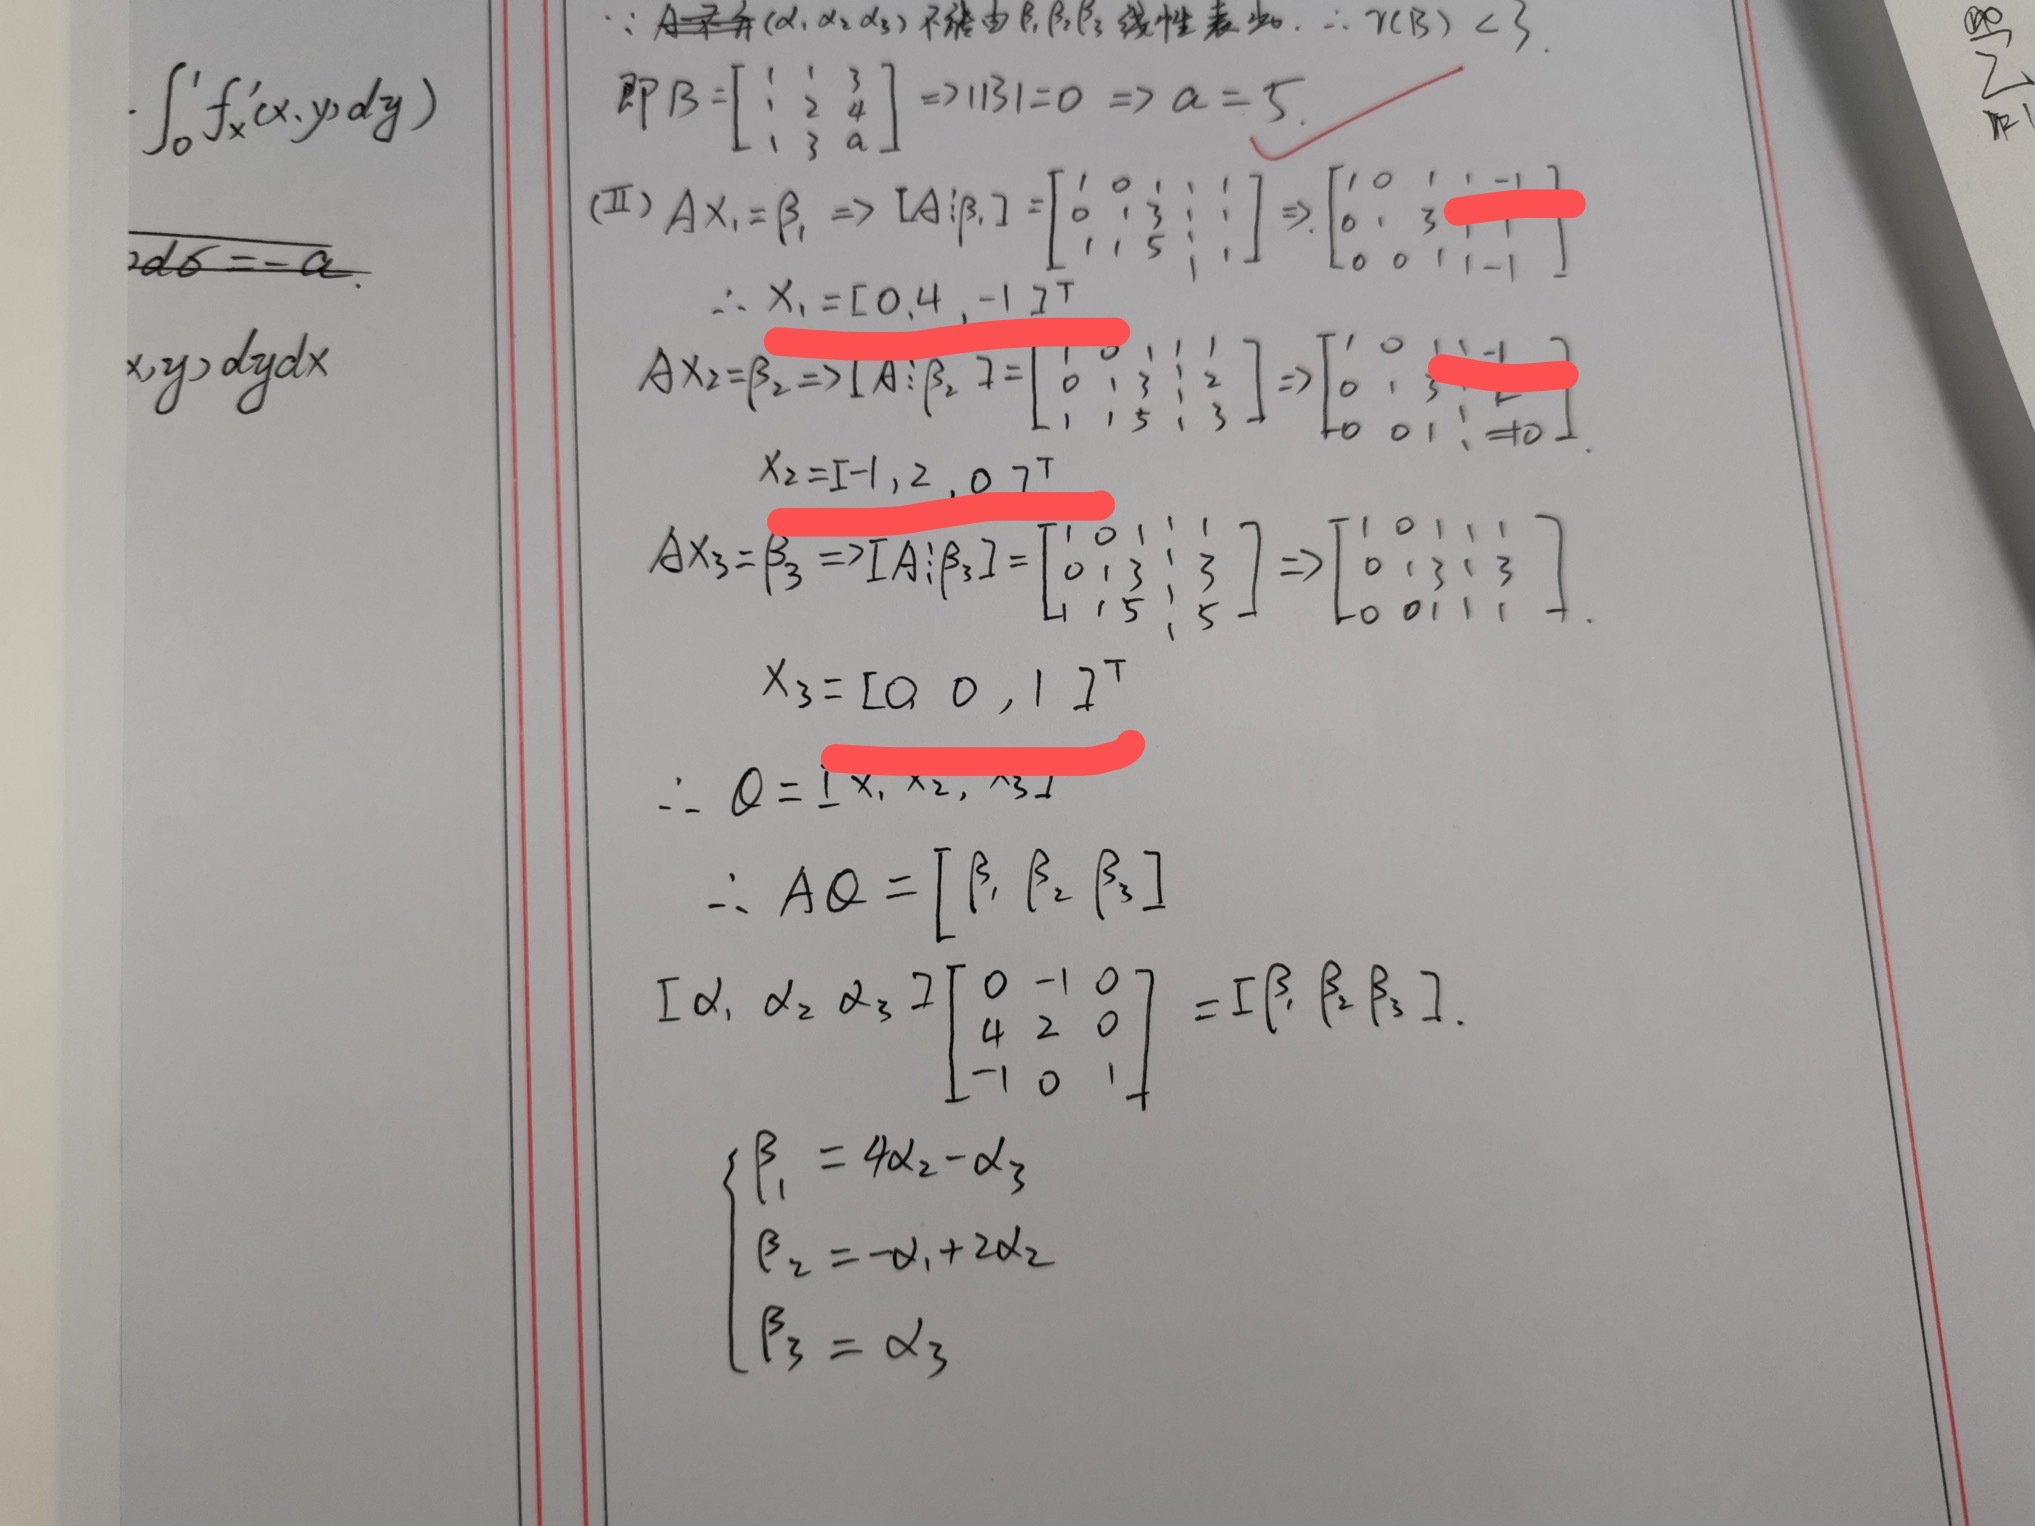 ∫₀¹ f'ₓ(x,y)dy)
dσ = -a.
x,y)dydx
∵ (α₁ α₂ α₃) 不能由 β₁ β₂ β₃ 线性表出. ∴ r(B) < 3.
即 B = [1 1 3; 1 2 4; 1 3 a] => |B| = 0 => a = 5.
(II) AX₁ = β₁ => [A⋮β₁] = [1 0 1 ⋮ 1; 0 1 3 ⋮ 1; 1 1 5 ⋮ 1] => [1 0 1 ⋮ -1; 0 1 3 ⋮ 1; 0 0 1 ⋮ -1]
∴ X₁ = [0, 4, -1]ᵀ
AX₂ = β₂ => [A⋮β₂] = [1 0 1 ⋮ 1; 0 1 3 ⋮ 2; 1 1 5 ⋮ 3] => [1 0 1 ⋮ -1; 0 1 3 ⋮ 2; 0 0 1 ⋮ 0].
X₂ = [-1, 2, 0]ᵀ
AX₃ = β₃ => [A⋮β₃] = [1 0 1 ⋮ 1; 0 1 3 ⋮ 3; 1 1 5 ⋮ 5] => [1 0 1 ⋮ 1; 0 1 3 ⋮ 3; 0 0 1 ⋮ 1].
X₃ = [0, 0, 1]ᵀ
∴ Q = [X₁ X₂, X₃]
∴ AQ = [β₁ β₂ β₃]
[α₁ α₂ α₃][0 -1 0; 4 2 0; -1 0 1] = [β₁ β₂ β₃].
β₁ = 4α₂ - α₃
β₂ = -α₁ + 2α₂
β₃ = α₃
∞
Σ